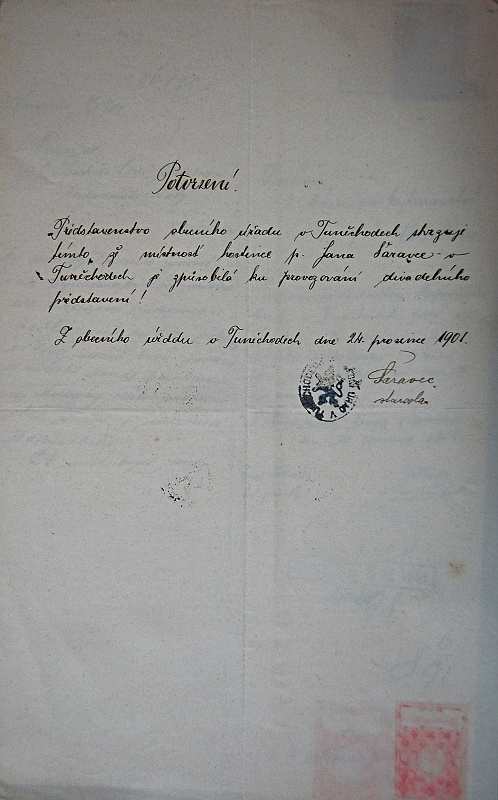 Potvrzení.
Představenstvo obecního úřadu v Tuněchodech stvrzuje
tímto, že místnost hostince p. Jana Šaravce v
Tuněchodech je způsobilá ku provozování divadelního
představení!
Z obecního úřadu v Tuněchodech dne 24. prosince 1901.
Šaravec
starosta.